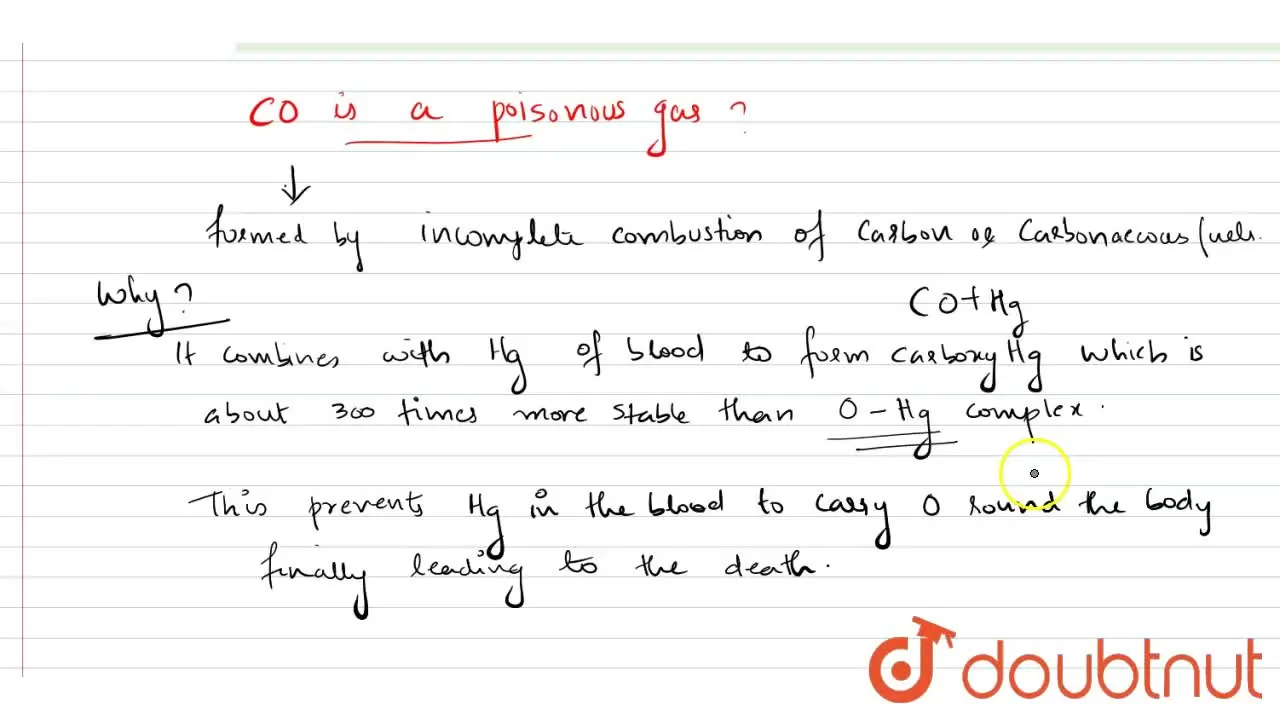 CO is a poisonous gas ?
formed by incomplete combustion of carbon or carbonaceous fuels.
Why ?
CO + Hg
It combines with Hg of blood to form carboxy Hg which is
about 300 times more stable than O - Hg complex.
This prevents Hg in the blood to carry O round the body
finally leading to the death.
doubtnut